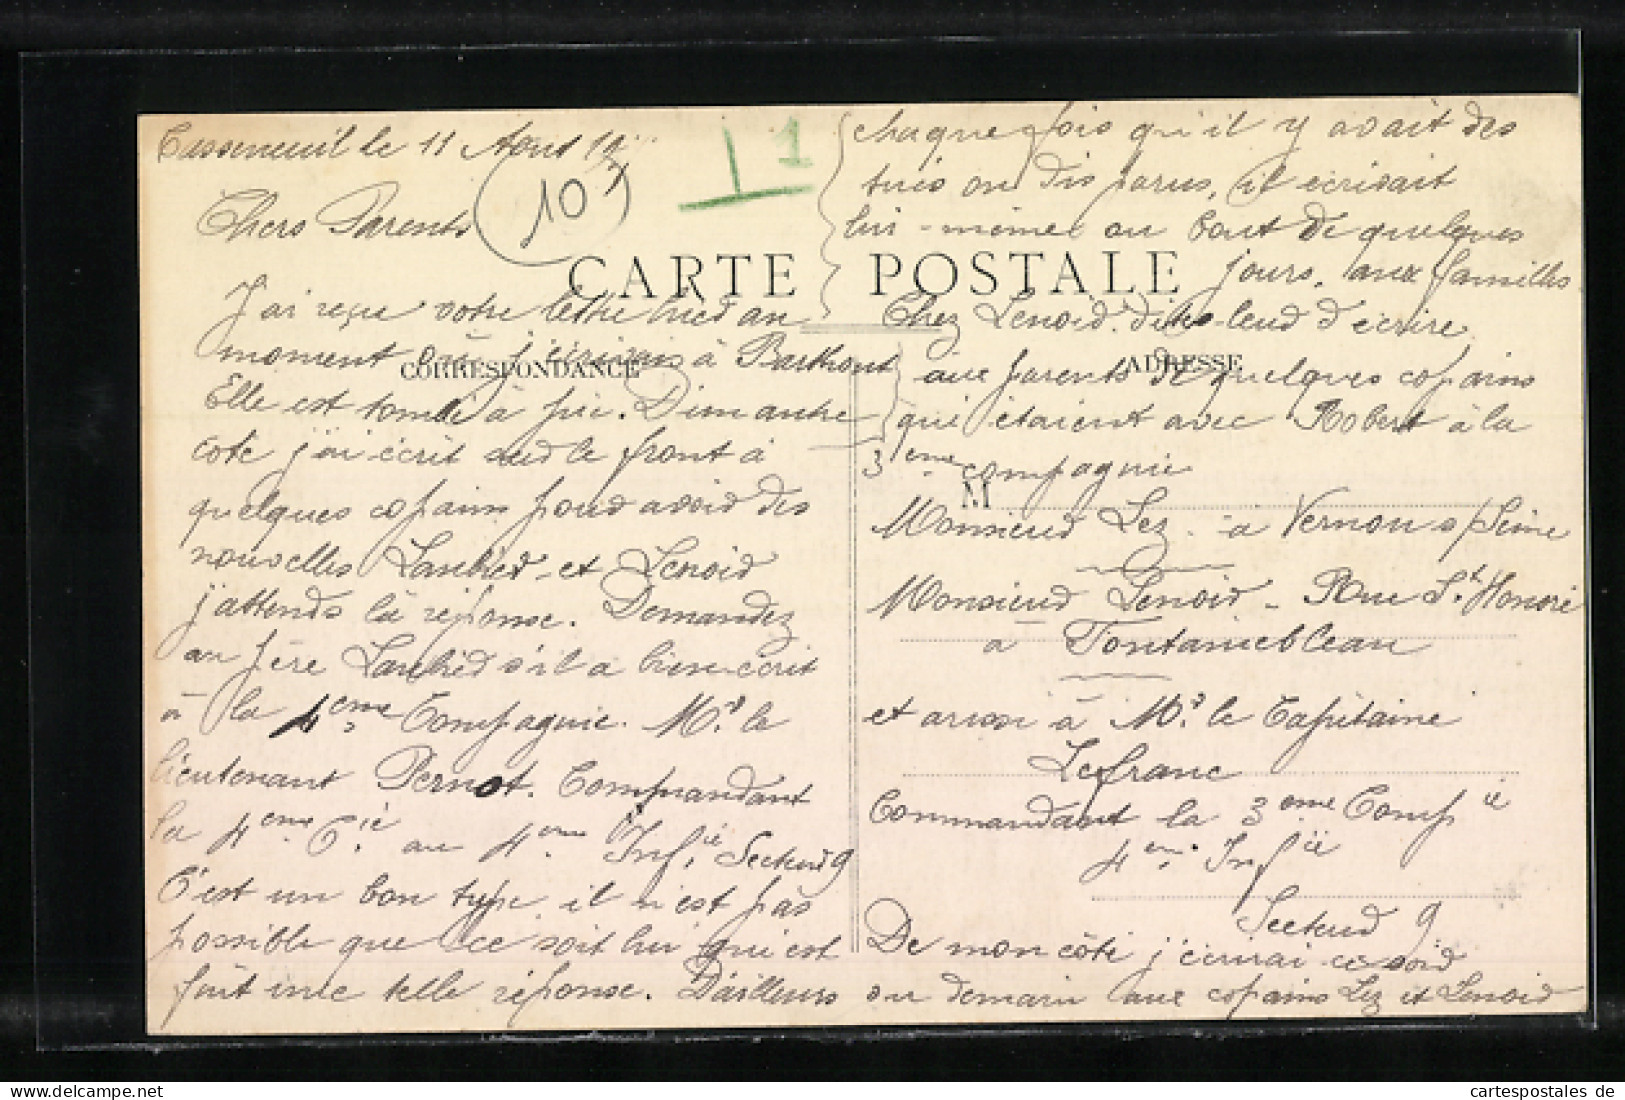 Casseneuil le 11 Aout 19
10
1
Chers Parents
CARTE POSTALE
J'ai reçu votre lettre hier au
moment où j'écrivais à
CORRESPONDANCE
Elle est tombé à pic. D'un autre
coté j'ai écrit sur le front à
quelques copains pour avoir des
nouvelles et Lenoir
j'attends la réponse. Demandez
au père s'il a bien écrit
à la 4eme Compagnie. Mr le
lieutenant Pernot. Commandant
la 4eme Cie au 4eme Infie Secteur 9
C'est un bon type il n'est pas
possible que ce soit lui qui est
fait une telle réponse. D'ailleurs
chaque fois qu'il y avait des
tués ou disparus, il écrivait
lui-même au bout de quelques
jours, aux familles.
Chez Lenoir. dites-leur d'écrire
ADRESSE
aux parents de quelques copains
qui étaient avec Robert à la
3eme compagnie
M
Monsieur Lez - à Vernou s/Seine
Monsieur Lenoir - Rue St Honoré
à Fontainebleau
et aussi à Mr le Capitaine
Lefranc
Commandant la 3eme Compie
4eme Infie
Secteur 9
De mon côté j'écrirai ce soir
ou demain aux copains Lez et Lenoir
cartespostales de